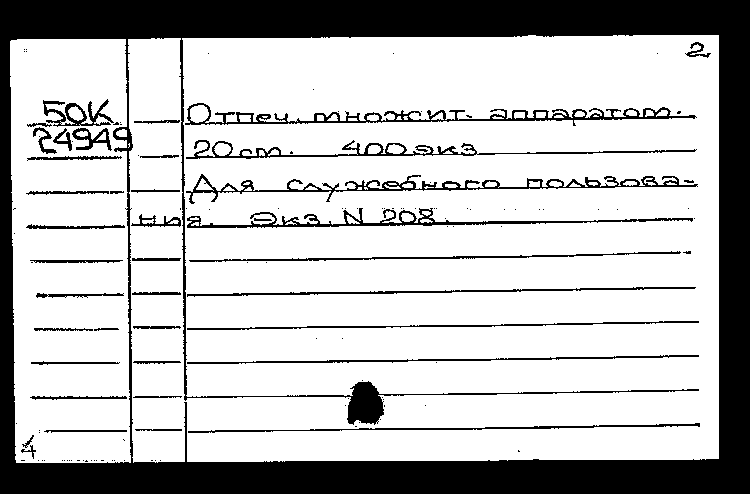 2
50К Отпеч. множит. аппаратом.
24949 20 см. 400 экз
Для служебного пользова-
ния. Экз. N 208.
4